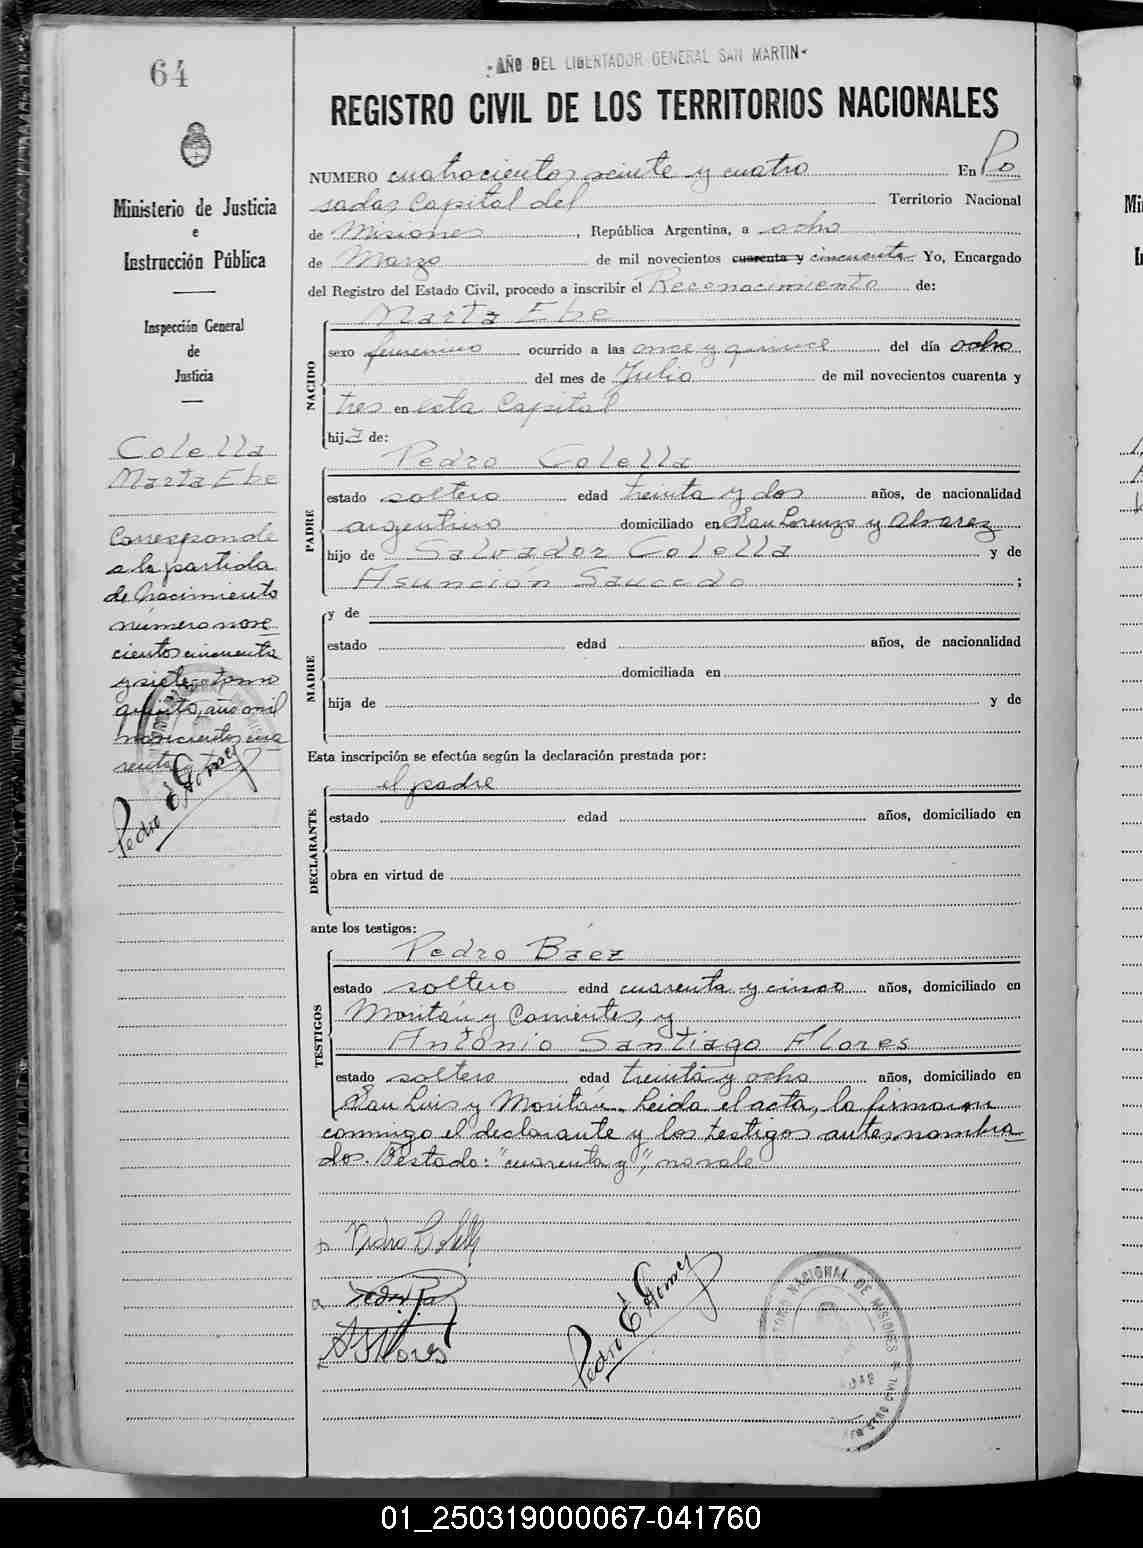 64
-AÑO DEL LIBERTADOR GENERAL SAN MARTIN-
REGISTRO CIVIL DE LOS TERRITORIOS NACIONALES
Ministerio de Justicia
e
Instrucción Pública
Inspección General
de
Justicia
Colella
Marta Ebe
Corresponde
a la partida
de Nacimiento
número nove
cientos cincuenta
y siete tomo
quinto, año mil
novecientos cua
renta y tres
Pedro E Gomez
NUMERO cuatrocientos veinte y cuatro En Po
sadas Capital del Territorio Nacional
de Misiones, República Argentina, a ocho
de Marzo de mil novecientos cuarenta y cincuenta Yo, Encargado
del Registro del Estado Civil, procedo a inscribir el Reconocimiento de:
Marta Ebe
NACIDO
sexo femenino ocurrido a las once y quince del día ocho
del mes de Julio de mil novecientos cuarenta y
tres en esta Capital
hija de:
Pedro Colella
PADRE
estado soltero edad treinta y dos años, de nacionalidad
argentino domiciliado en San Lorenzo y Alvarez
hijo de Salvador Colella y de
Asunción Saucedo ;
MADRE
y de
estado edad años, de nacionalidad
domiciliada en
hija de y de
Esta inscripción se efectúa según la declaración prestada por:
el padre
DECLARANTE
estado edad años, domiciliado en
obra en virtud de
ante los testigos:
Pedro Báez
TESTIGOS
estado soltero edad cuarenta y cinco años, domiciliado en
Moritán y Corrientes, y
Antonio Santiago Flores
estado soltero edad treinta y ocho años, domiciliado en
San Luis y Moritán. Leida el acta, la firmaron
conmigo el declarante y los testigos antes nombra
dos. Testado: "cuarenta y", no vale
Pedro Colella
A S Flores
Pedro E Gomez
NACIONAL DE MISIONES
01_250319000067-041760